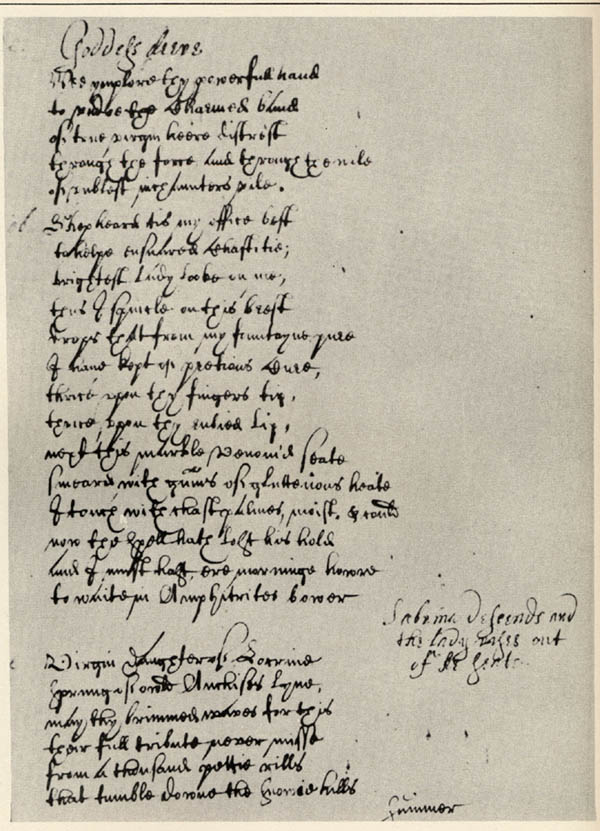 Goddess deere
Wee ymplore thy powerfull hand
to vndoe the Charmed band
of true virgin heere distrest
through the force and through the wile
of vnblest inchaunters vile.
Shepheard tis my office best
to helpe ensnared Chastitie;
brightest Lady looke on me,
thus I sprincle on this brest
drops that from my fountayne pure
I haue kept of pretious Cure,
thrice vpon thy fingers tip,
thrice, vpon thy rubied lip,
next this marble venom'd seate
smeard with gummes of gluttenous heate
I touch with chast palmes, moist & could
now the spell hath lost his hold
and I must hast, ere morninge howre
to waite in Amphitrites bower
Sabrina descends and
the lady rises out
of her seate
Virgin daughter of Locrine
sprung of ould Anchises lyne,
may thy brimmed waves for this
their full tribute never misse
from a thousand pettie rills
that tumble downe the snowie hills
summer